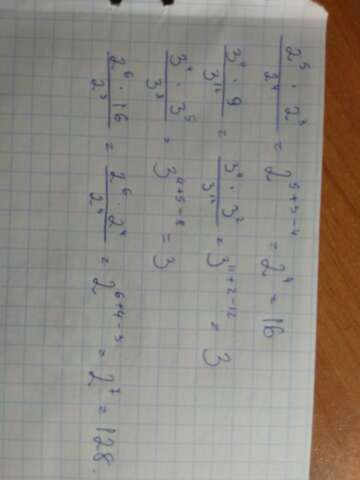 2⁵ · 2³ / 2⁴ = 2⁵⁺³⁻⁴ = 2⁴ = 16
3¹¹ · 9 / 3¹² = 3¹¹ · 3² / 3¹² = 3¹¹⁺²⁻¹² = 3
3⁴ · 3⁵ / 3⁸ = 3⁴⁺⁵⁻⁸ = 3
2⁶ · 16 / 2³ = 2⁶ · 2⁴ / 2³ = 2⁶⁺⁴⁻³ = 2⁷ = 128.